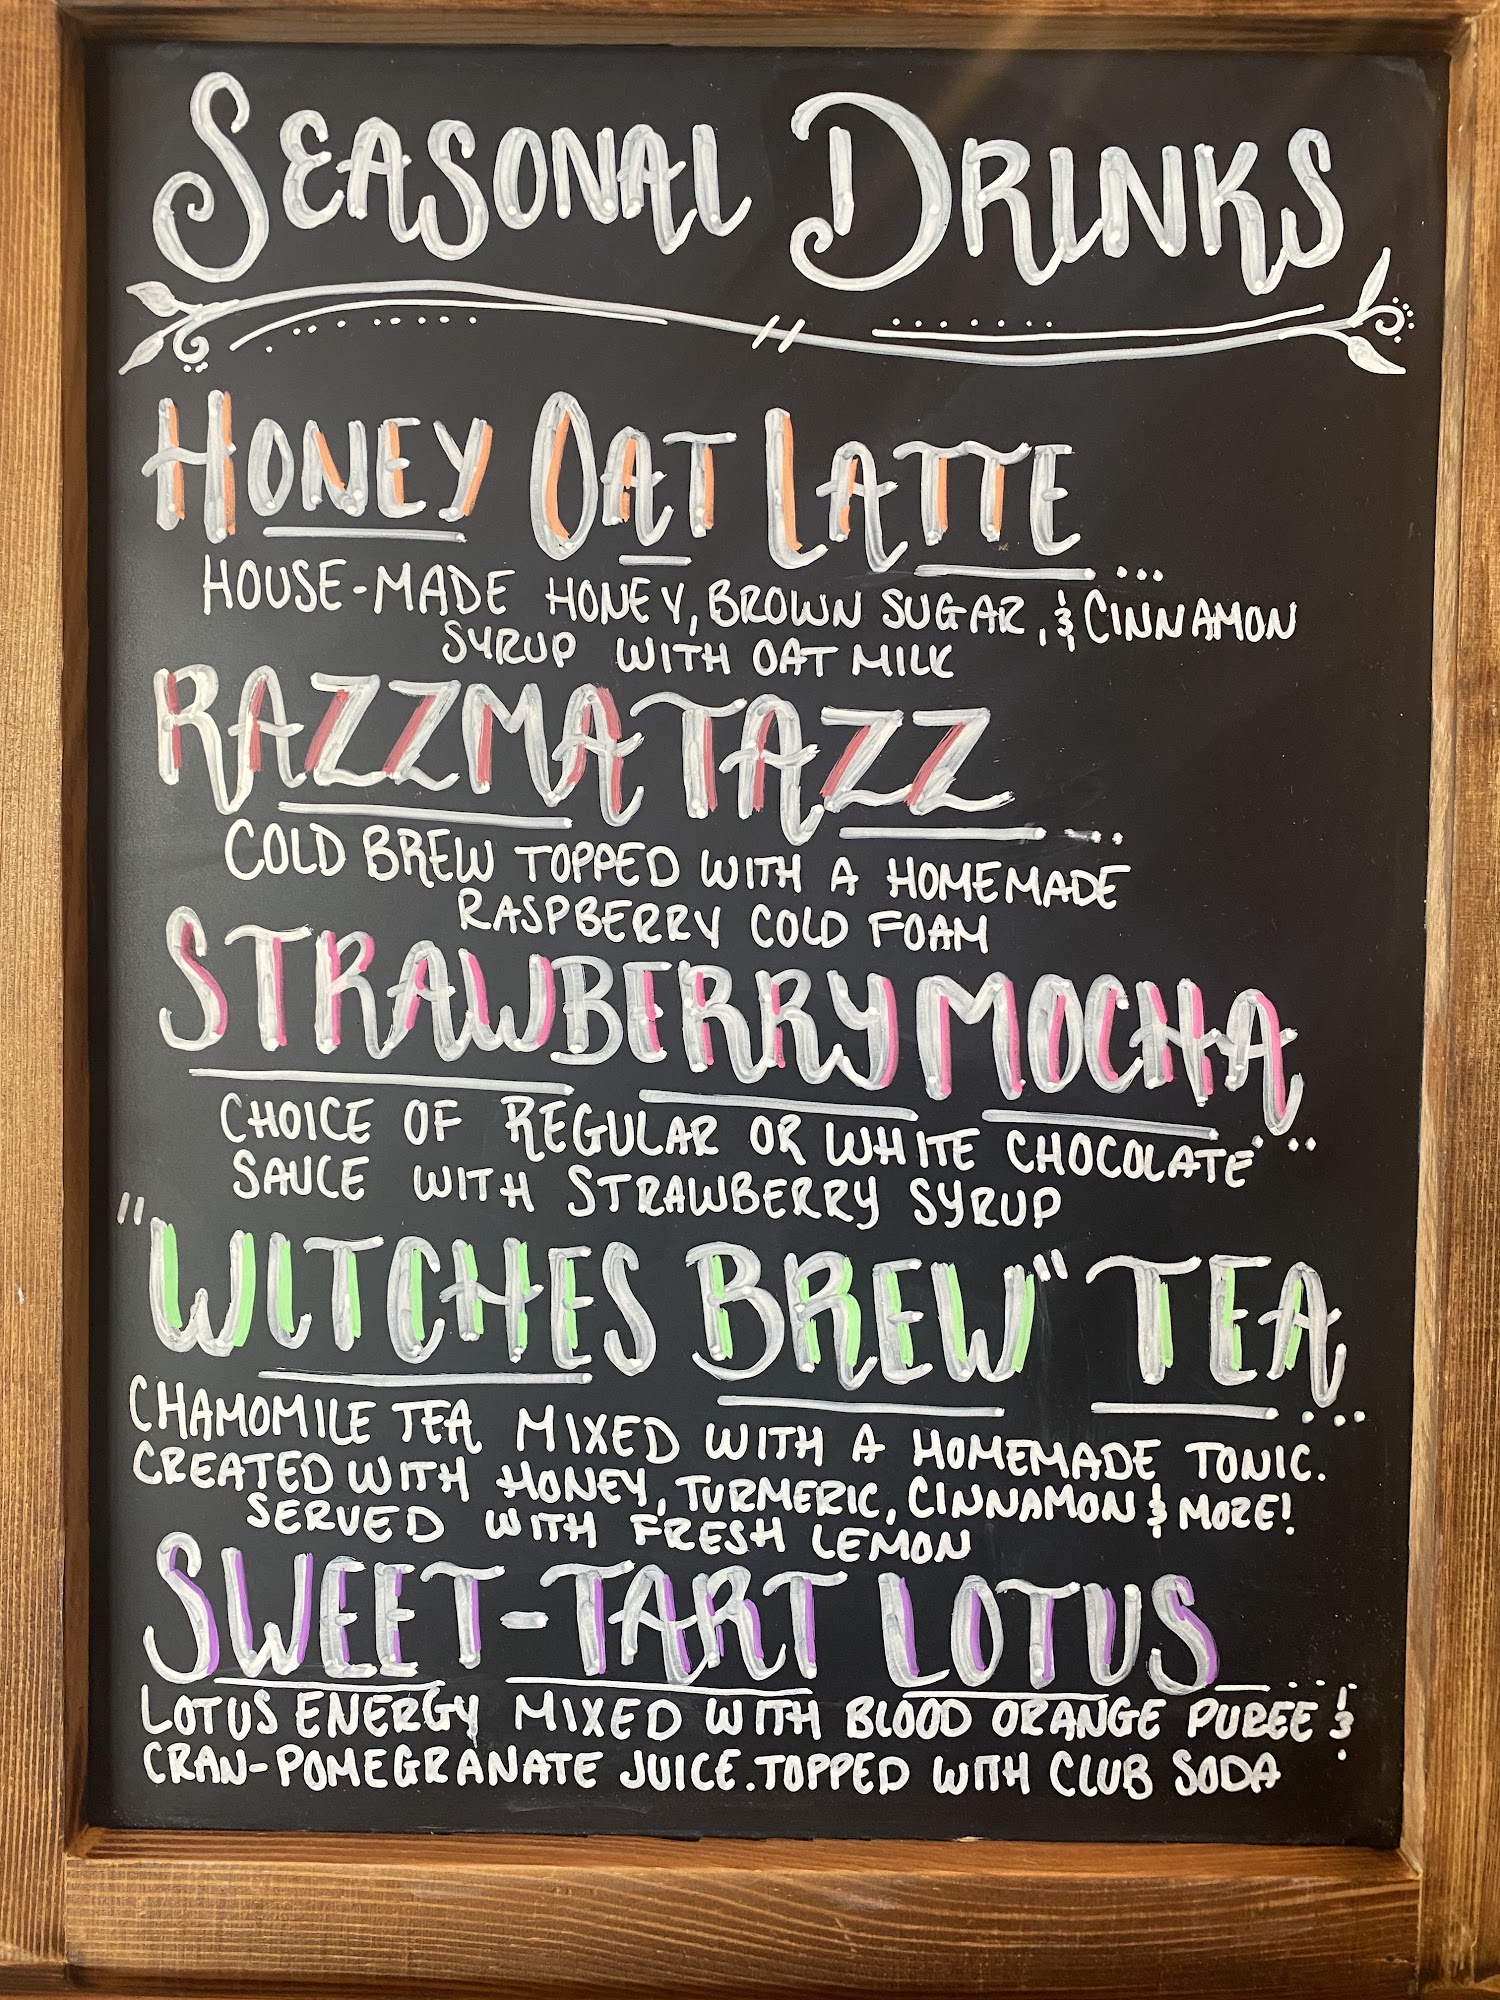 SEASONAL DRINKS
HONEY OAT LATTE...
HOUSE-MADE HONEY, BROWN SUGAR, & CINNAMON
SYRUP WITH OAT MILK
RAZZMATAZZ...
COLD BREW TOPPED WITH A HOMEMADE
RASPBERRY COLD FOAM
STRAWBERRY MOCHA...
CHOICE OF REGULAR OR WHITE CHOCOLATE
SAUCE WITH STRAWBERRY SYRUP
"WITCHES BREW" TEA...
CHAMOMILE TEA MIXED WITH A HOMEMADE TONIC.
CREATED WITH HONEY, TURMERIC, CINNAMON & MORE!
SERVED WITH FRESH LEMON
SWEET-TART LOTUS...
LOTUS ENERGY MIXED WITH BLOOD ORANGE PUREE &
CRAN-POMEGRANATE JUICE. TOPPED WITH CLUB SODA